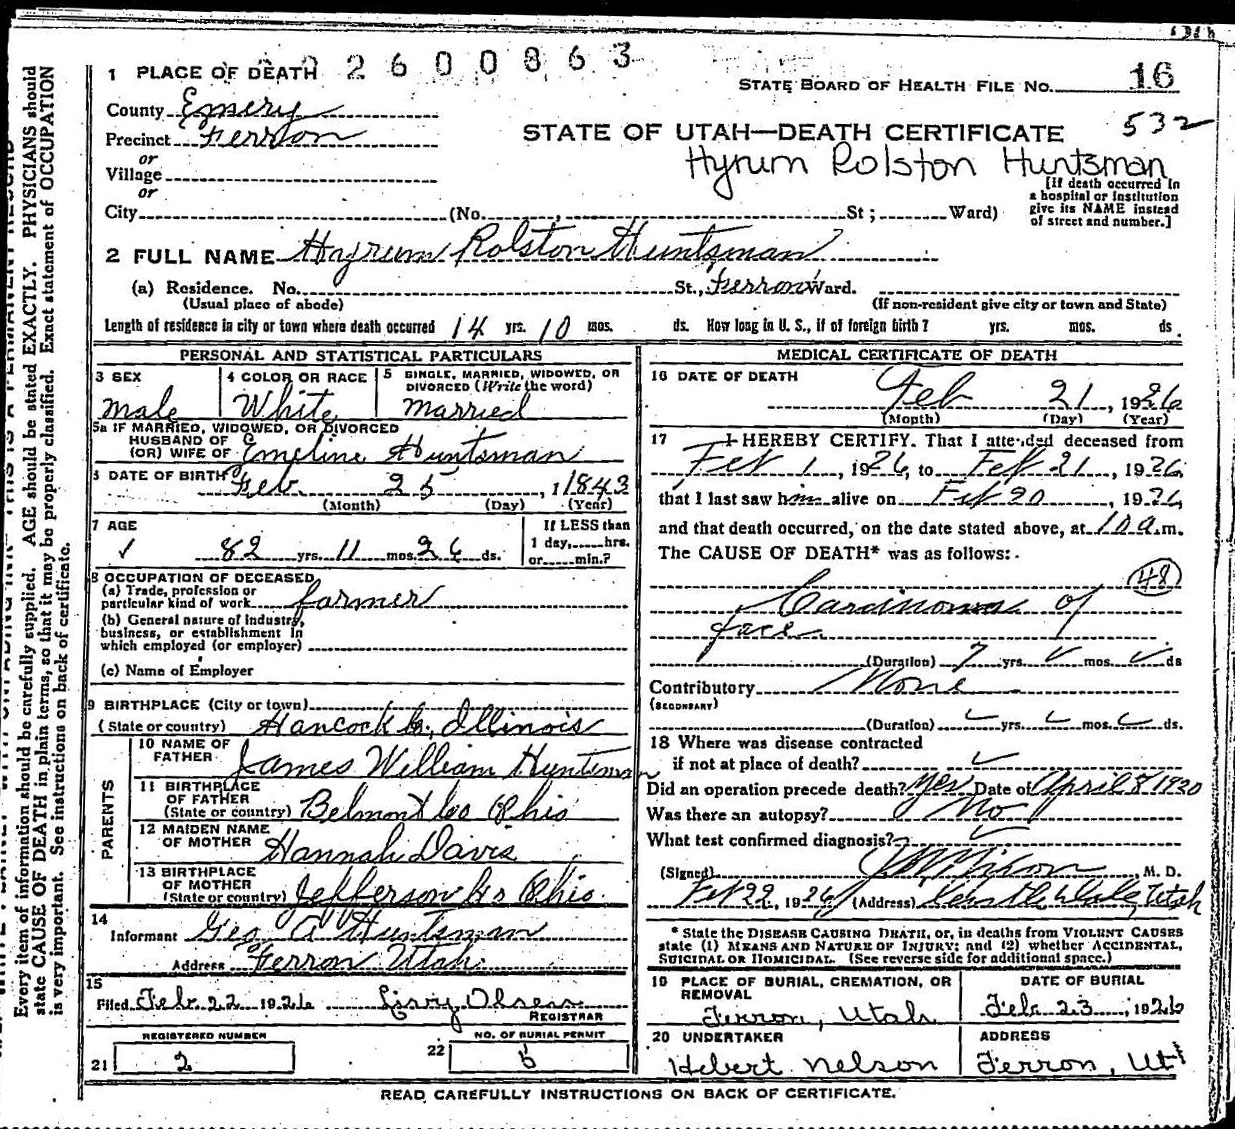 2600863
1 PLACE OF DEATH
STATE BOARD OF HEALTH FILE NO. 16
County Emery
532
Precinct Ferron
STATE OF UTAH—DEATH CERTIFICATE
or
Hyrum Rolston Huntsman
Village
or
[If death occurred in a hospital or institution give its NAME instead of street and number.]
City (No. , St; Ward)
2 FULL NAME Hyrum Rolston Huntsman
(a) Residence. No. St., Ferron Ward.
(Usual place of abode) (If non-resident give city or town and State)
Length of residence in city or town where death occurred 14 yrs. 10 mos. ds. How long in U. S., if of foreign birth? yrs. mos. ds.
PERSONAL AND STATISTICAL PARTICULARS
3 SEX
Male
4 COLOR OR RACE
White
5 SINGLE, MARRIED, WIDOWED, OR DIVORCED (Write the word)
Married
5a IF MARRIED, WIDOWED, OR DIVORCED
HUSBAND OF
(OR) WIFE OF Emeline Huntsman
6 DATE OF BIRTH Feb. 25, 1 1843
(Month) (Day) (Year)
7 AGE
82 yrs. 11 mos. 26 ds.
If LESS than
1 day, hrs.
or min.?
8 OCCUPATION OF DECEASED
(a) Trade, profession or
particular kind of work farmer
(b) General nature of Industry,
business, or establishment in
which employed (or employer)
(c) Name of Employer
9 BIRTHPLACE (City or town)
(State or country) Hancock Co, Illinois
PARENTS
10 NAME OF
FATHER James William Huntsman
11 BIRTHPLACE
OF FATHER
(State or country) Belmont Co Ohio
12 MAIDEN NAME
OF MOTHER Hannah Davis
13 BIRTHPLACE
OF MOTHER
(State or country) Jefferson Co Ohio
14
Informant Geo A Huntsman
Address Ferron Utah
15
Filed Feb 22 1926
REGISTRAR
REGISTERED NUMBER
21 2
NO. OF BURIAL PERMIT
22
MEDICAL CERTIFICATE OF DEATH
16 DATE OF DEATH
Feb 21, 1926
(Month) (Day) (Year)
17 I HEREBY CERTIFY. That I attended deceased from
Feb 1, 1926, to Feb 21, 1926,
that I last saw him alive on Feb 20, 1926,
and that death occurred, on the date stated above, at 10 a.m.
The CAUSE OF DEATH* was as follows:
48
Carcinoma of
face
(Duration) 7 yrs. mos. ds
Contributory None
(SECONDARY)
(Duration) yrs. mos. ds.
18 Where was disease contracted
if not at place of death?
Did an operation precede death? Yes. Date of April 8 1920
Was there an autopsy? No
What test confirmed diagnosis?
(Signed) M. D.
Feb 22, 1926 (Address) Castle Dale, Utah
* State the DISEASE CAUSING DEATH, or, in deaths from VIOLENT CAUSES
state (1) MEANS AND NATURE OF INJURY; and (2) whether ACCIDENTAL,
SUICIDAL OR HOMICIDAL. (See reverse side for additional space.)
19 PLACE OF BURIAL, CREMATION, OR
REMOVAL
Ferron, Utah
DATE OF BURIAL
Feb. 23, 1926
20 UNDERTAKER
Hebert Nelson
ADDRESS
Ferron, Ut
READ CAREFULLY INSTRUCTIONS ON BACK OF CERTIFICATE.
Every item of information should be carefully supplied. AGE should be stated EXACTLY. PHYSICIANS should
state CAUSE OF DEATH in plain terms, so that it may be properly classified. Exact statement of OCCUPATION
is very important. See instructions on back of certificate.